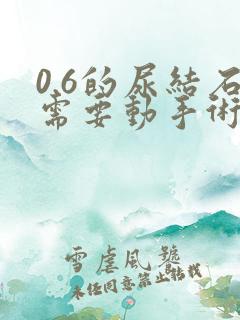 06的尿結石
需要動手術
雪虐風號
未经同意禁止转载